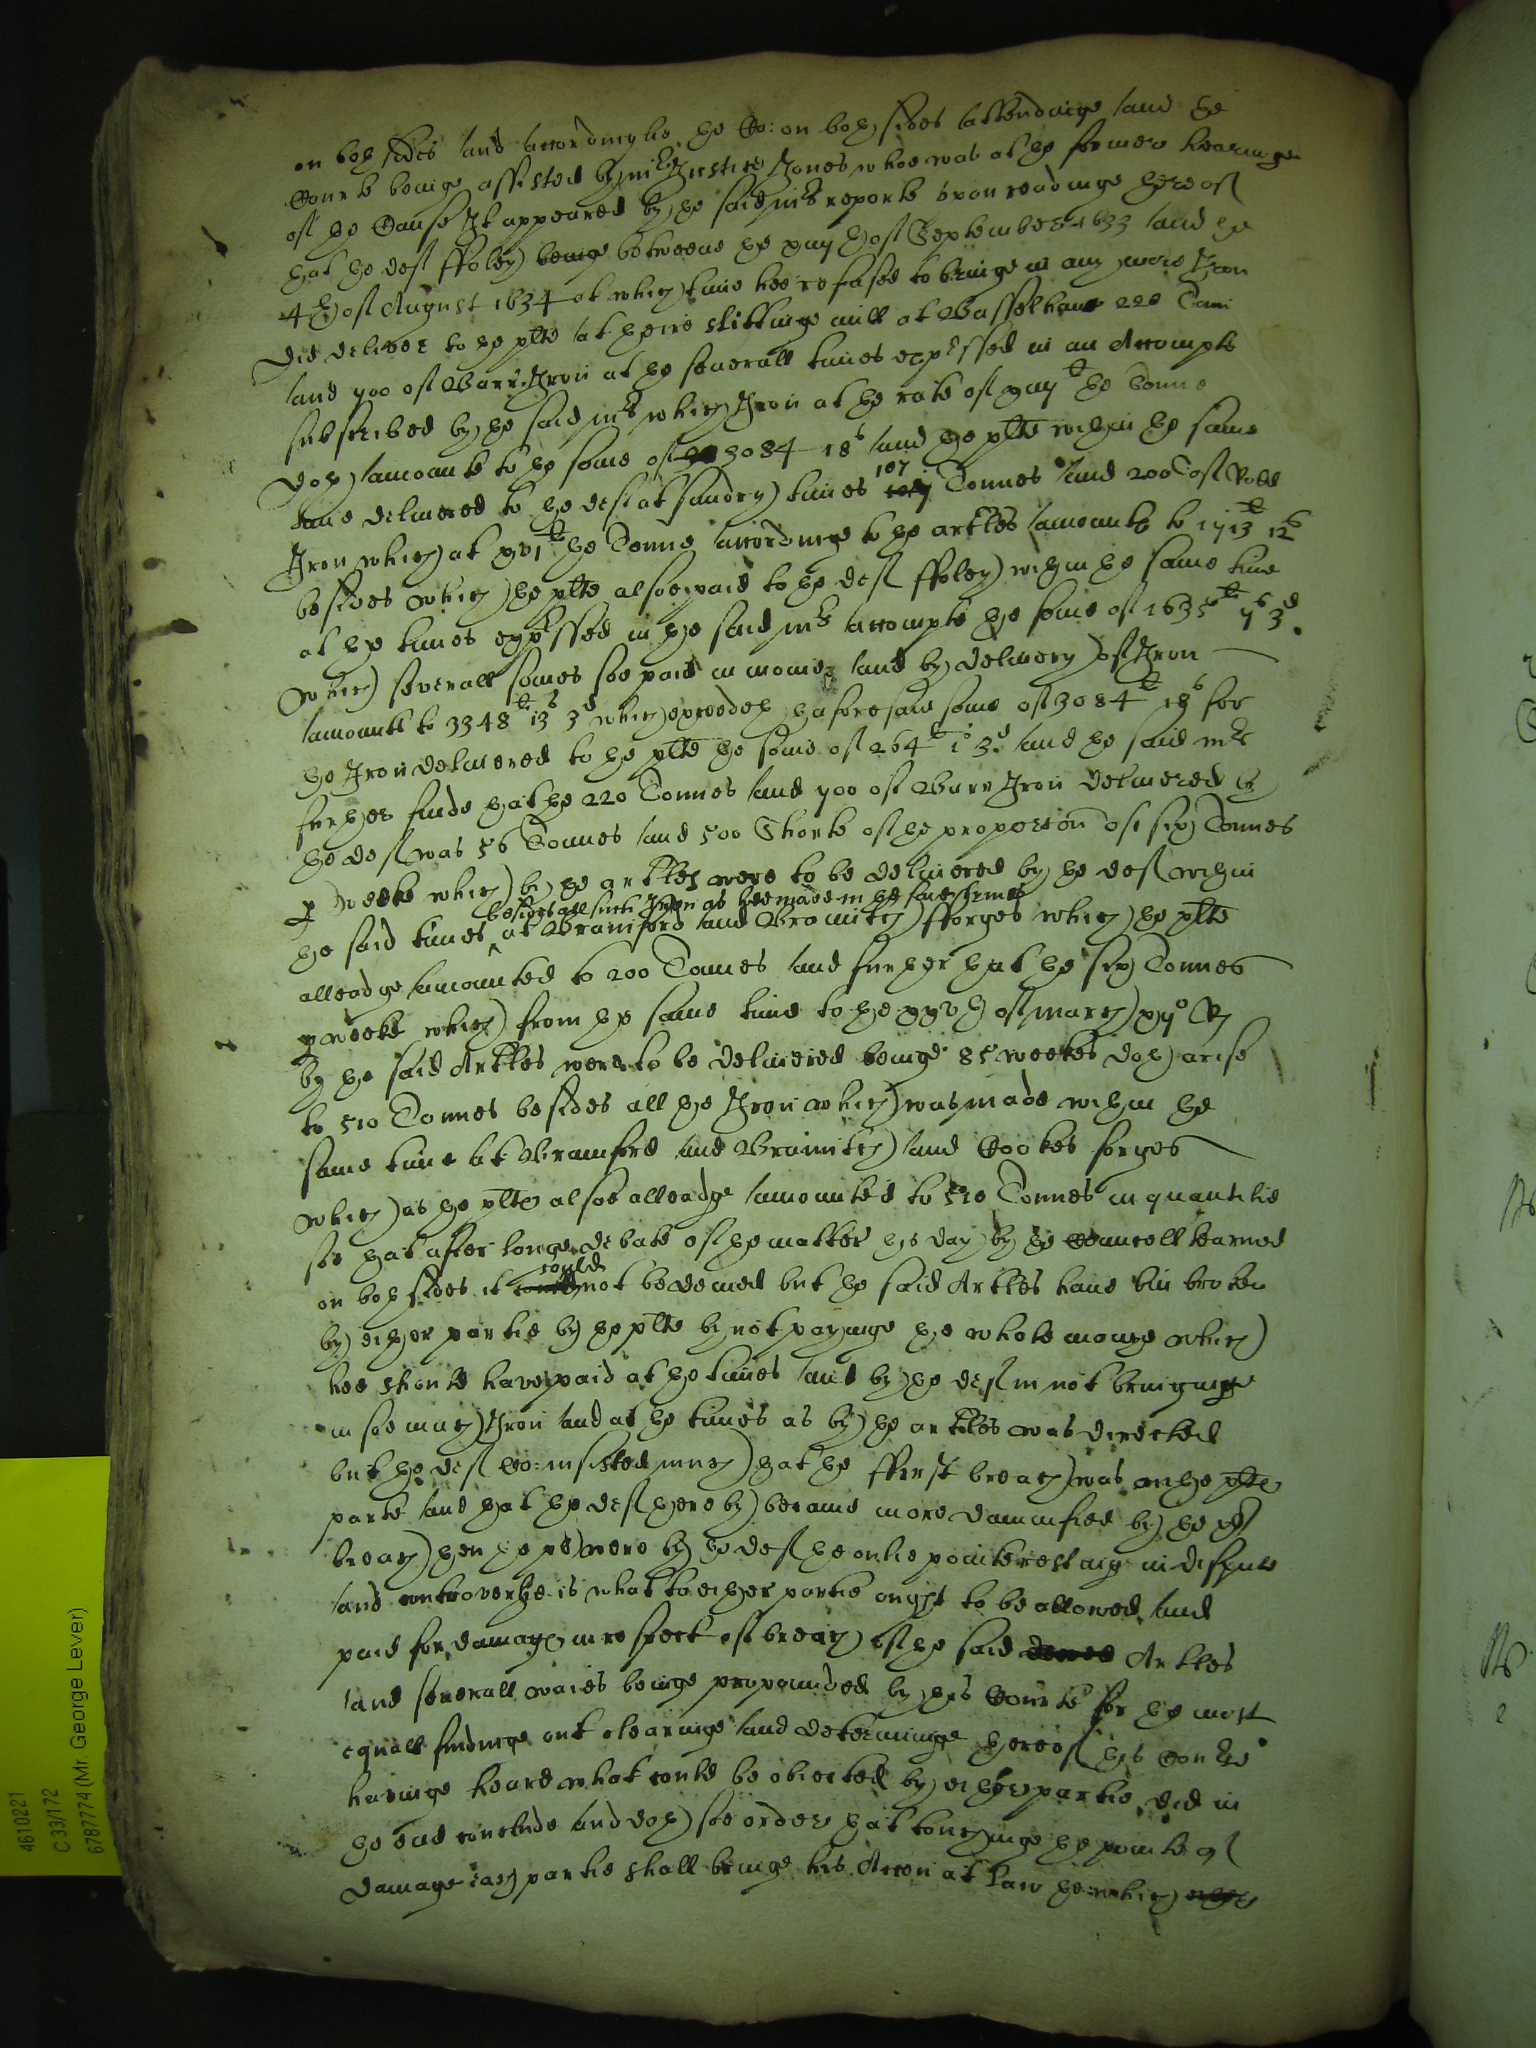 on both sides and accordinglie the Co: on both sides attendinge and the
Courte beinge assisted by mr Justice Jones whoe was at the former hearinge
of the Cause It appeared by the said mrs reporte upon readinge thereof
that the deft ffoley beinge betweene the of September 1633 and the
4th of August 1634 at which time hee refused to bringe in any more Iron
did deliver to the plte at theire slittinge mill at 220 Tonn
and 700 of Barr Iron at the severall times expressed in an Accompte
subscribed by the said mr which Iron at the rate of the Tonne
doth amounte to the some of 3084 18s and the plte within the same
time delivered to the deft at sundry times 107 Tonnes and 200 of Rodd
Iron which at xvi li the Tonne accordinge to the artles amounte to 1713 li 12s
besides which the plte alsoe paid to the deft ffoley within the same time
at the times expressed in the said mrs accompte the some of 1635 li 7s 3d.
Which severall somes soe paid in money and by delivery of Iron
amounte to 3348 li 13s 3d which exceedeth thaforesaid some of 3084 li 18s for
the Iron delivered to the plte the some of 264 li 1s 3d. and the said mr
further finds that the 220 Tonnes and 700 of Barr Iron delivered by
the deft was 56 Tonnes and 500 Shorte of the proporcon of six Tonnes
p weeke which by the artles were to be delivered by the deft within
besides all such Iron as hee made in the same times
the said times at Bramford and fforges which the plte
alleadge amounted to 200 Tonnes and further that the six Tonnes
p weeke which from the same time to the xxvth of march
by the said Artles were to be delivered beinge 85 weekes doth arise
to 510 Tonnes besides all the Iron which was made within the
same time at Bramford and and Cookes forges
which as the plte alsoe alleadge amounted to 510 Tonnes in quantitie
soe that after longe debate of the matter this day by the Councell learned
could
on both sides it not be denied but the said Artles have bin broken
by either partie by the plte by not payinge the whole moneye which
hee should have paid at the times and by the deft in not bringinge
in soe much Iron and at the times as by the artles was directed
but the deft Co: insisted much that the ffirst breach was on the plte
parte and that the deft thereby became more damnified by the plts
breach then the plte were by the deft the onlie pointe restinge in dispute
and controversie is what to either partie ought to be allowed and
paid for damage in respect of breach of the said Artles
and severall waies beinge propounded by this Courte for the most
equall findinge out clearinge and determininge thereof this Courte
havinge heard what could be obiected by either partie did in
the end conclude and doth soe order that touchinge the pointe of
damage each partie shall bringe his Accon at law the which
4610221
C 33/172
6787774 (Mr. George Lever)